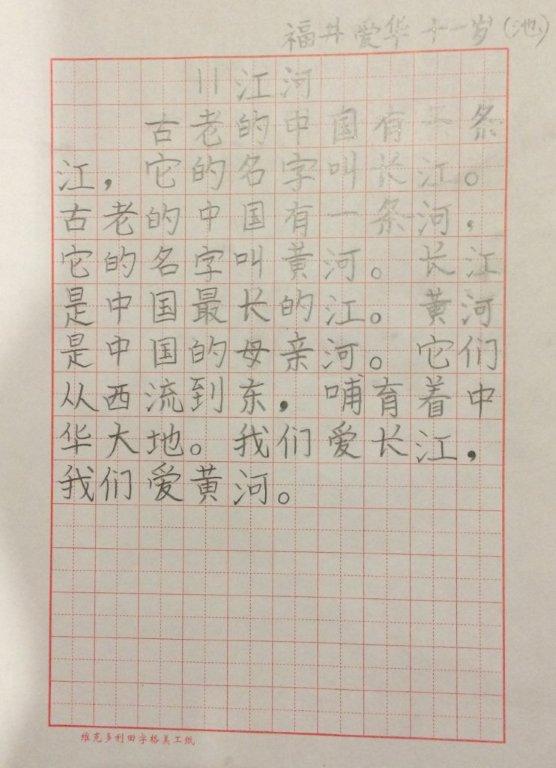 福井爱华 十一岁(池)
11 江河
古老的中国有一条
江，它的名字叫长江。
古老的中国有一条河，
它的名字叫黄河。长江
是中国最长的江。黄河
是中国的母亲河。它们
从西流到东，哺育着中
华大地。我们爱长江，
我们爱黄河。
维克多利田字格美工纸